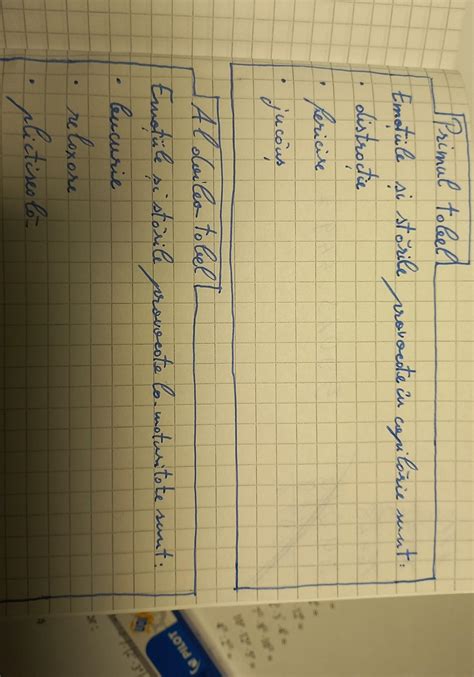 Primul tabel
Emoțiile și stările provocate în copilărie sunt:
• distracție
• fericire
• jucăuș
Al doilea tabel
Emoțiile și stările provocate la maturitate sunt:
• bucurie
• relaxare
• plictiseală
PILOT